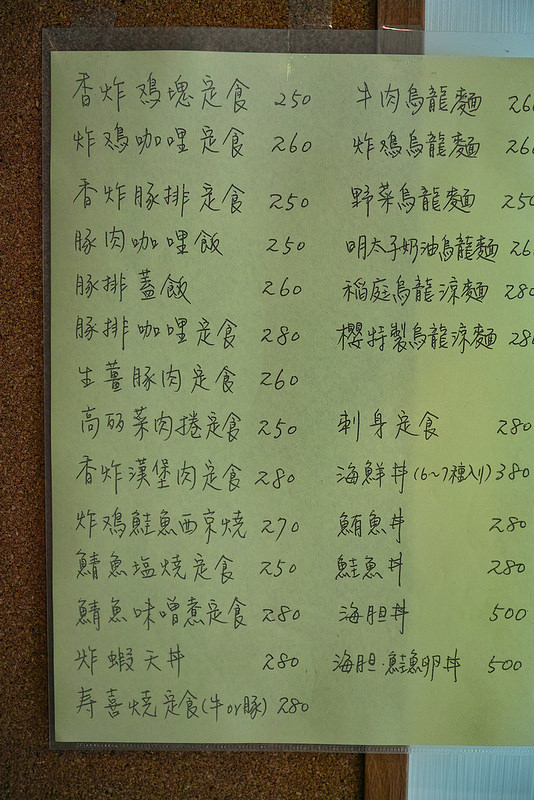 香炸鴙塊定食 250
炸鴙咖哩定食 260
香炸豚排定食 250
豚肉咖哩飯 250
豚排蓋飯 260
豚排咖哩定食 280
生薑豚肉定食 260
高麗菜肉捲定食 250
香炸漢堡肉定食 280
炸鴙鮭魚西京焼 270
鯖魚塩焼定食 250
鯖魚味噌煮定食 280
炸蝦天丼 280
寿喜燒定食(牛or豚) 280
牛肉烏龍麵 260
炸鴙烏龍麵 260
野菜烏龍麵 250
明太子奶油烏龍麵 260
稻庭烏龍涼麵 280
櫻特製烏龍涼麵 280
刺身定食 280
海鮮丼(6~7種入り) 380
鮪魚丼 280
鮭魚丼 280
海胆丼 500
海胆.鮭魚卵丼 500